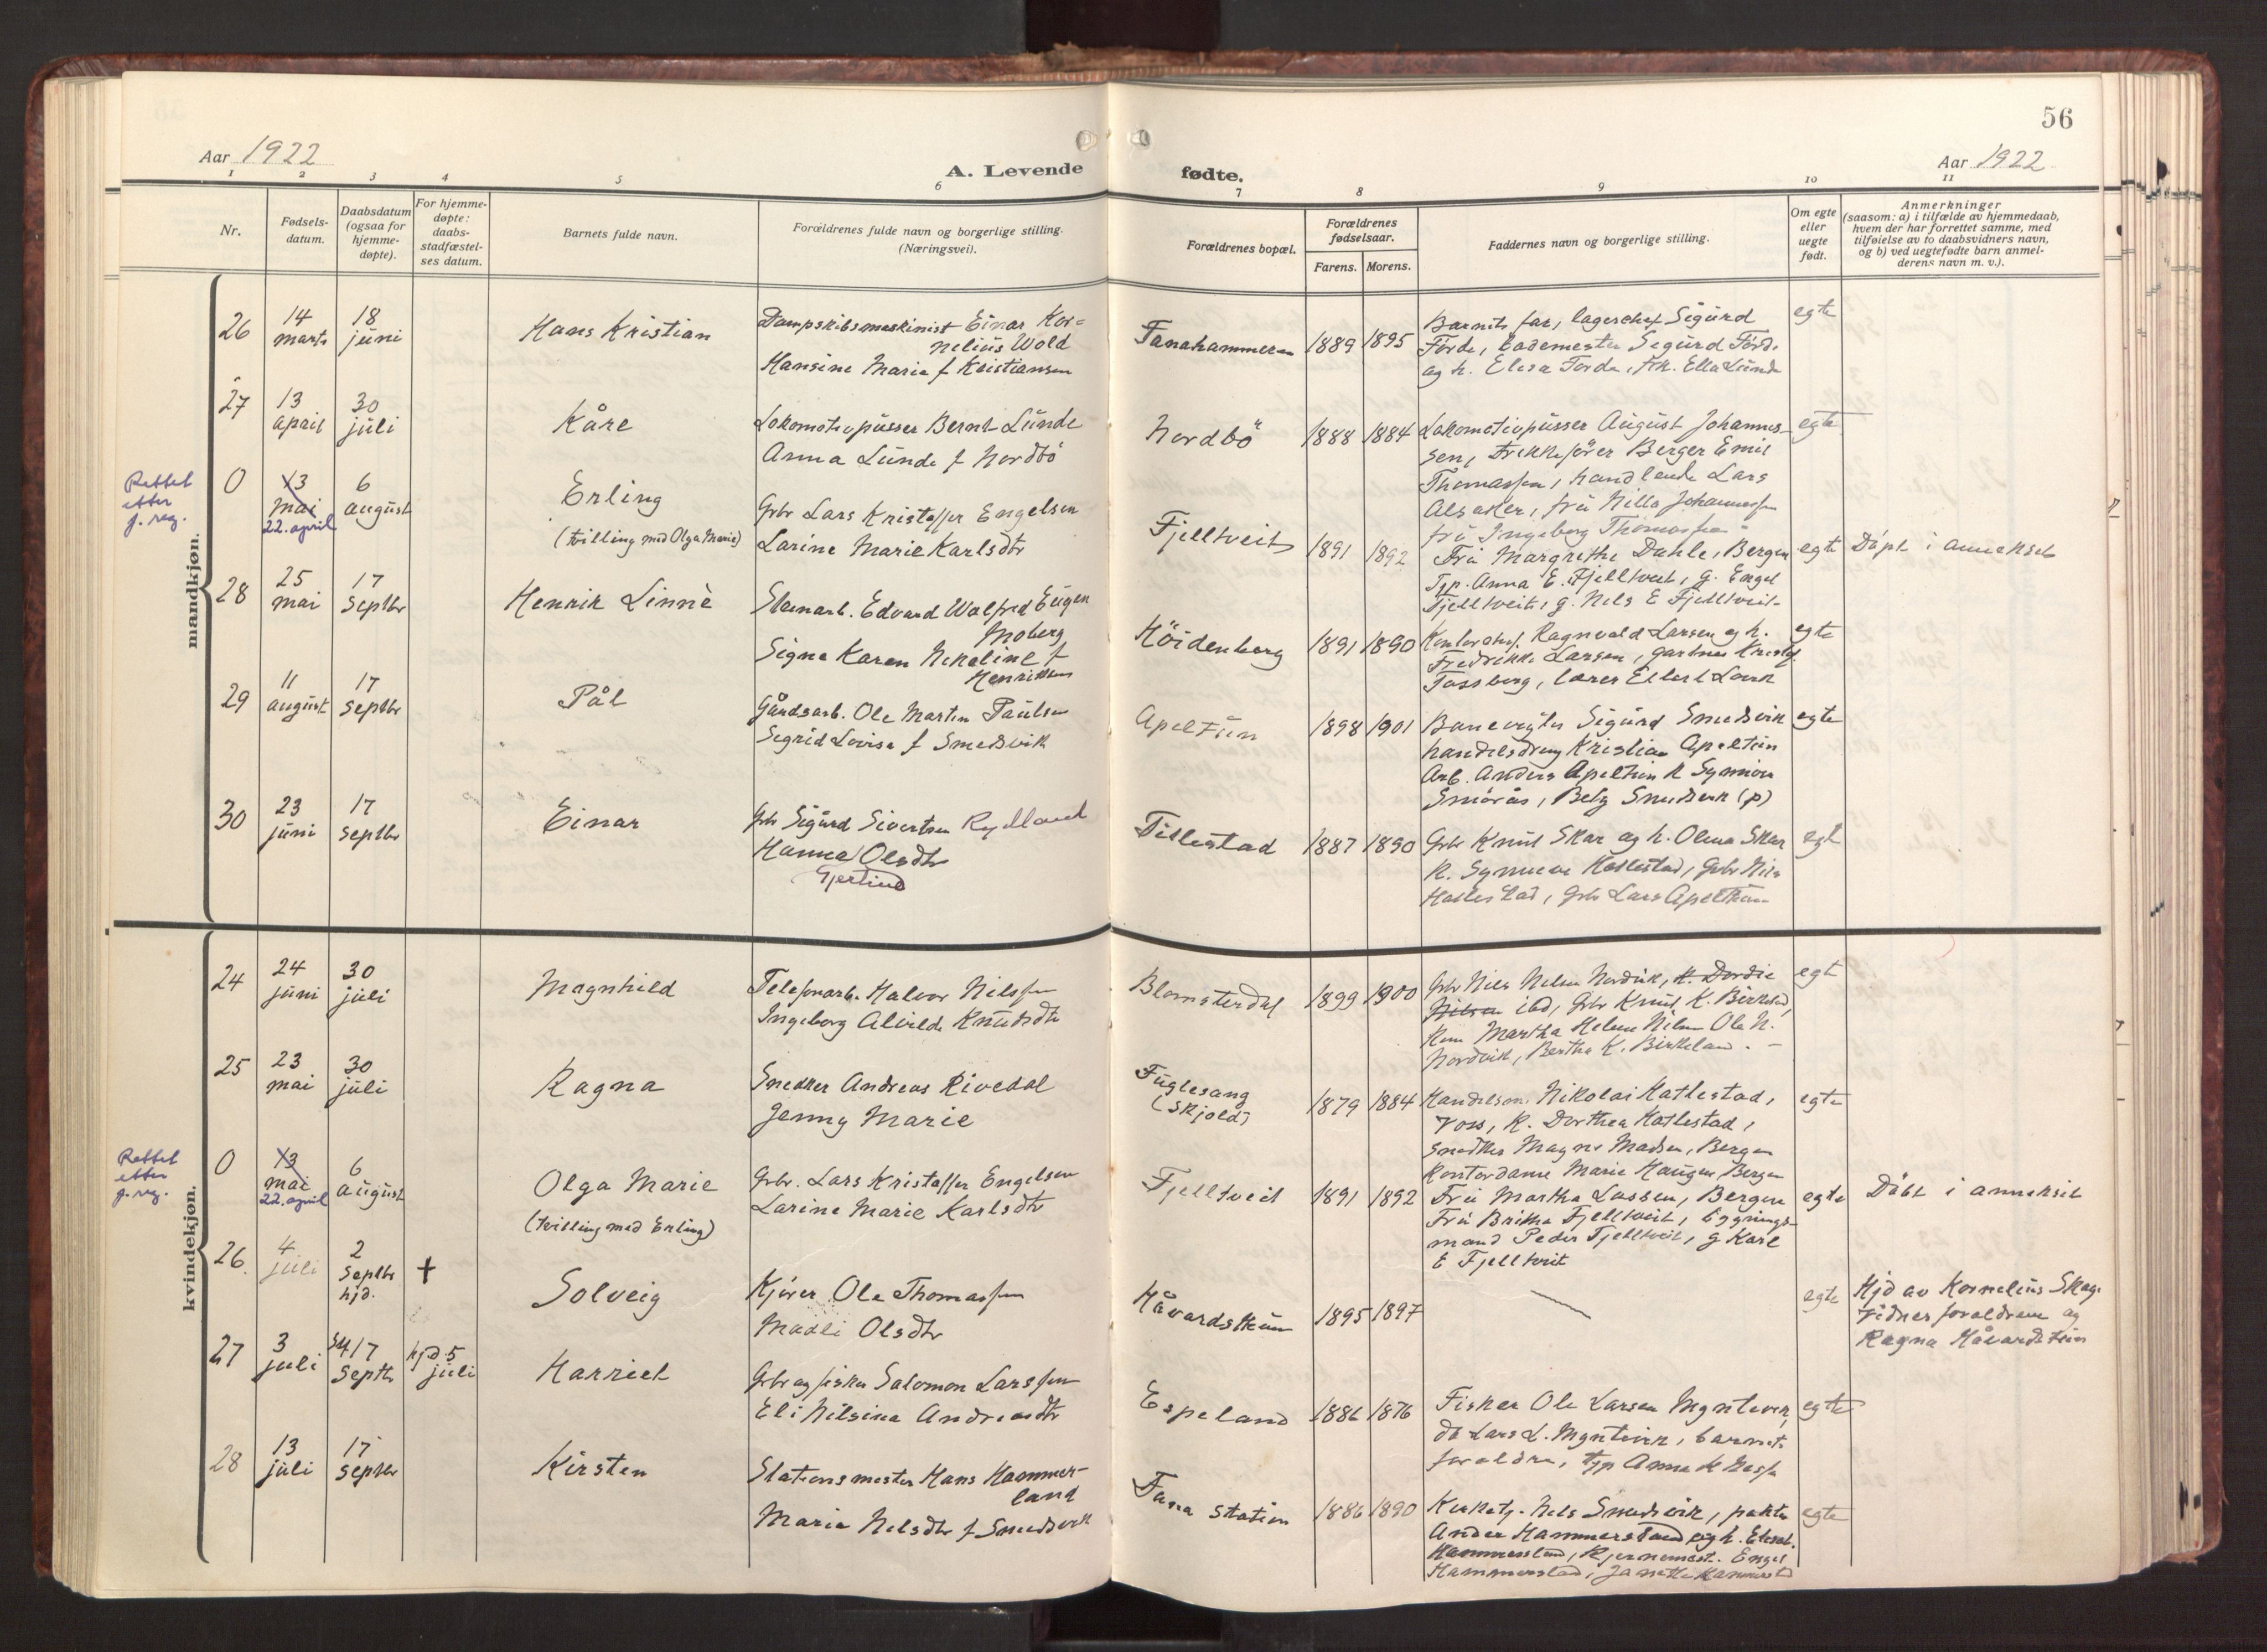 56
Aar 1922
A. Levende fødte.
Aar 1922
1 2 3 4 5 6 7 8 9 10 11
Nr.
Fødsels-
datum.
Daabsdatum
(ogsaa for
hjemme-
døpte).
For hjemme-
døpte:
daabs-
stadfæstel-
ses datum.
Barnets fulde navn.
Forældrenes fulde navn og borgerlige stilling.
(Næringsvei).
Forældrenes bopæl.
Forældrenes
fødselsaar.
Farens. Morens.
Faddernes navn og borgerlige stilling.
Om egte
eller
uegte
født.
Anmerkninger
(saasom: a) i tilfælde av hjemmedaab,
hvem der har forrettet samme, med
tilføielse av to daabsvidners navn,
og b) ved uegtefødte barn anmel-
derens navn m. v.).
mandkjøn.
26
14
marts
18
juni
Hans Kristian
Dampskibsmaskinist Einar Kor-
nelius Wold
Hansine Marie f Kristiansen
Fanahammeren
1889 1895
Barnets far, lagerchef Sigurd
Förde, Sigurd
ag h. Elisa Förde, Ella Lunde
egte
27
13
april
30
juli
Kåre
Lokomotivpusser Bernt Lunde
Anna Lunde f Nordbö
Nordbö
1888 1884
Lokomotivpusser August Johannes-
sen, Berger Emil
Thomassen, handlende Lars
Alsaker, fru Nilla Johannessen
fru Ingeborg Thomassen
egte
Rettet
etter
f. reg.
0
13
mai
22. april
6
august
Erling
(tvilling med Olga Marie)
Grbr Lars Kristoffer Engelsen
Larine Marie Karlsdtr
Fjelltveit
1891 1892
Fru Margrethe Dahle, Bergen
Tjp. Anna E. Fjelltveit, g. Engel
Fjelltveit, g. Nels E Fjelltveit
egte
Döpt i annekset
28
25
mai
17
Septbr
Henrik Linnè
Stenarb. Edvard Walfred Eugen
Moberg
Signe Karen Nekoline f
Henriksen
Höidenborg
1891 1890
Kontorchef Ragnvald Larsen og h.
Fredrikke Larsen, gartner
Tossberg, lærer
egte
29
11
august
17
Septbr
Pål
Gårdsarb. Ole Martin Paulsen
Sigrid Lovise f Smedsvik
Apeltun
1898 1901
Banevogter Sigurd Smedsvik
handelsdreng Kristian Apeltun
Arb. Anders Apeltun k
Smörås, Smedsvik (p)
egte
30
23
juni
17
septbr
Einar
Grbr Sigurd Sivertsen Rydland
Hanna Olsdtr
Gjertrud
Titlestad
1887 1890
Grbr Knut Skar ag h. Olina Skar
k. Synneve Hatlestad, Grbr Nils
Hatlestad, Grbr Lars Apeltun
egt
kvindekjøn.
24
24
juni
30
juli
Magnhild
Telefonarb. Halvor Nilssen
Ingeborg Alvilde Knutsdtr
Blomsterdal
1899 1900
Grbr Nils Nilsen Nordvik, k. Dordie
Nilsen ibd, Grbr Knut K. Birkeland,
Martha Helene Nilsen Ole N.
Nordvik, Bertha K. Birkeland. -
egt
25
23
mai
30
juli
Ragna
Snedker Andreas Rivedal
Jenny Marie
Fuglesang
(Skjold)
1879 1884
Handelsm. Nikolai Hatlestad,
Voss, k. Dorthea Hatlestad,
Snedker Magne Madsen, Bergen
Kontordame Marie Haugen, Bergen
egte
Rettet
etter
f. reg.
0
13
mai
22. april
6
august
Olga Marie
(tvilling med Erling)
Grbr. Lars Kristoffer Engelsen
Larine Marie Karlsdtr
Fjelltveit
1891 1892
Fru Martha Lassen, Bergen
Fru Britha Fjelltveit, bygnings-
mand Peder Fjelltveit, g Karl
E Fjelltveit
egte
Döbt i annekset
26
4
juli
2
Septbr
hjd.
+
Solveig
Kjörer Ole Thomassen
Madli Olsdtr
Håvardstun
1895 1897
—
egte
Hjd av Kornelius Skage
Vidner foreldrene og
Ragna Håvardstun
27
3
juli
17
Septbr
hjd. 5
juli
Harriet
Grbr og fisker Salomon Larssen
Eli Nilsine Andreasdtr
Espeland
1886 1876
Fisker Ole Larsen Myntevik,
do Lars L. Myntevik, barnets
foreldre, tjp Anna
egte
28
13
juli
17
septbr
Kirsten
Stationsmester Hans Hammer-
land
Marie Nelsdtr f Smedsvik
Fana Station
1886 1890
Kirketj. Nels Smedsvik,
Hammersland og h.
Engel
Hammersland,
egte